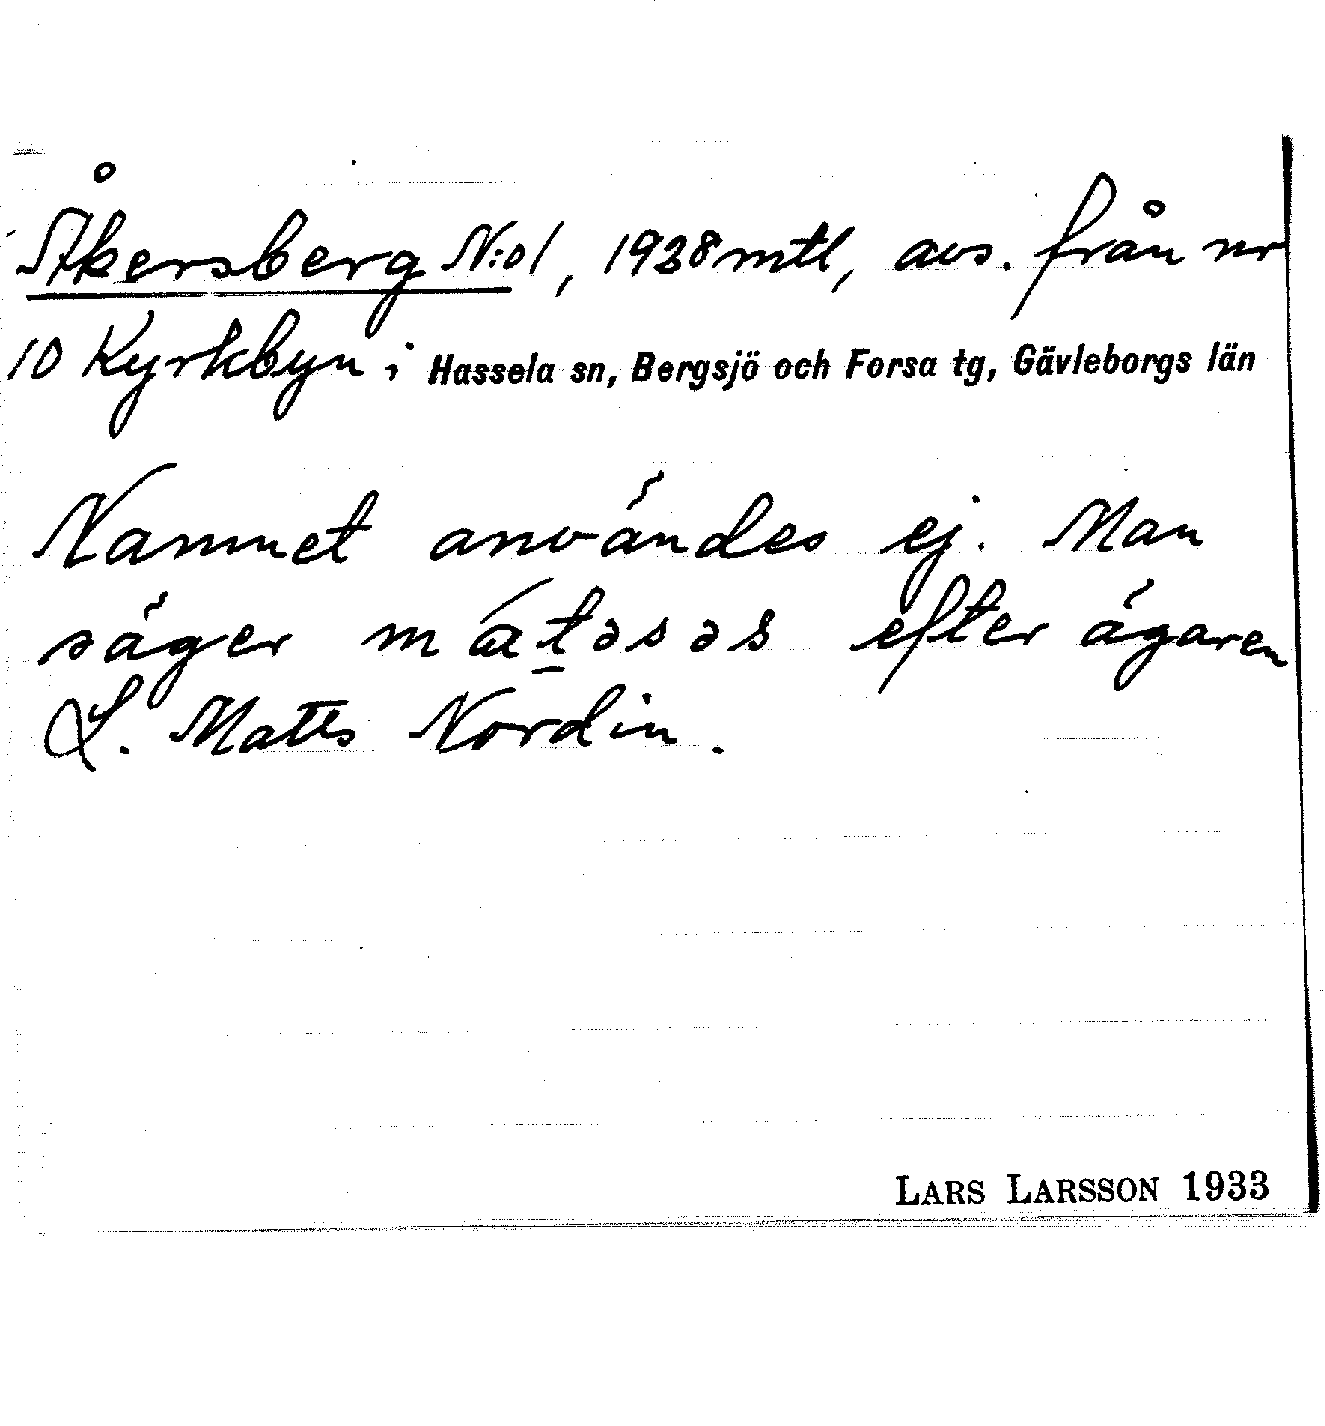 Åkersberg N:o 1, 1928 mtl, avs. från nr
10 Kyrkbyn i Hassela sn, Bergsjö och Forsa tg, Gävleborgs län
Namnet användes ej. Man
säger efter ägaren
L. Matts Nordin.
LARS LARSSON 1933